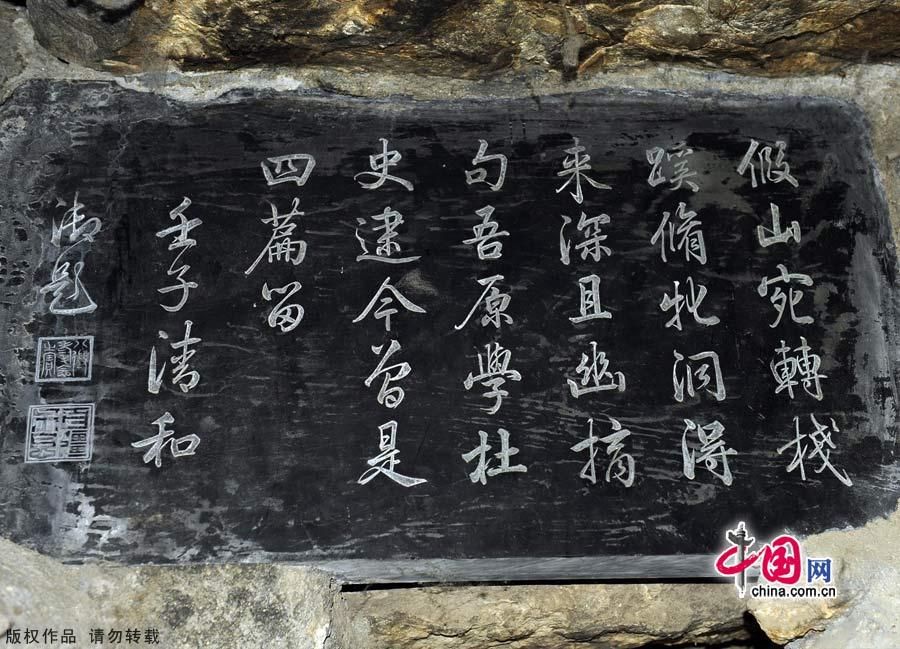 假山宛轉栈
蹊脩牝洞得
来深且幽摘
句吾原學杜
史逮今曽是
四篇留
壬子清和
御题
中国网
china.com.cn
版权作品 请勿转载